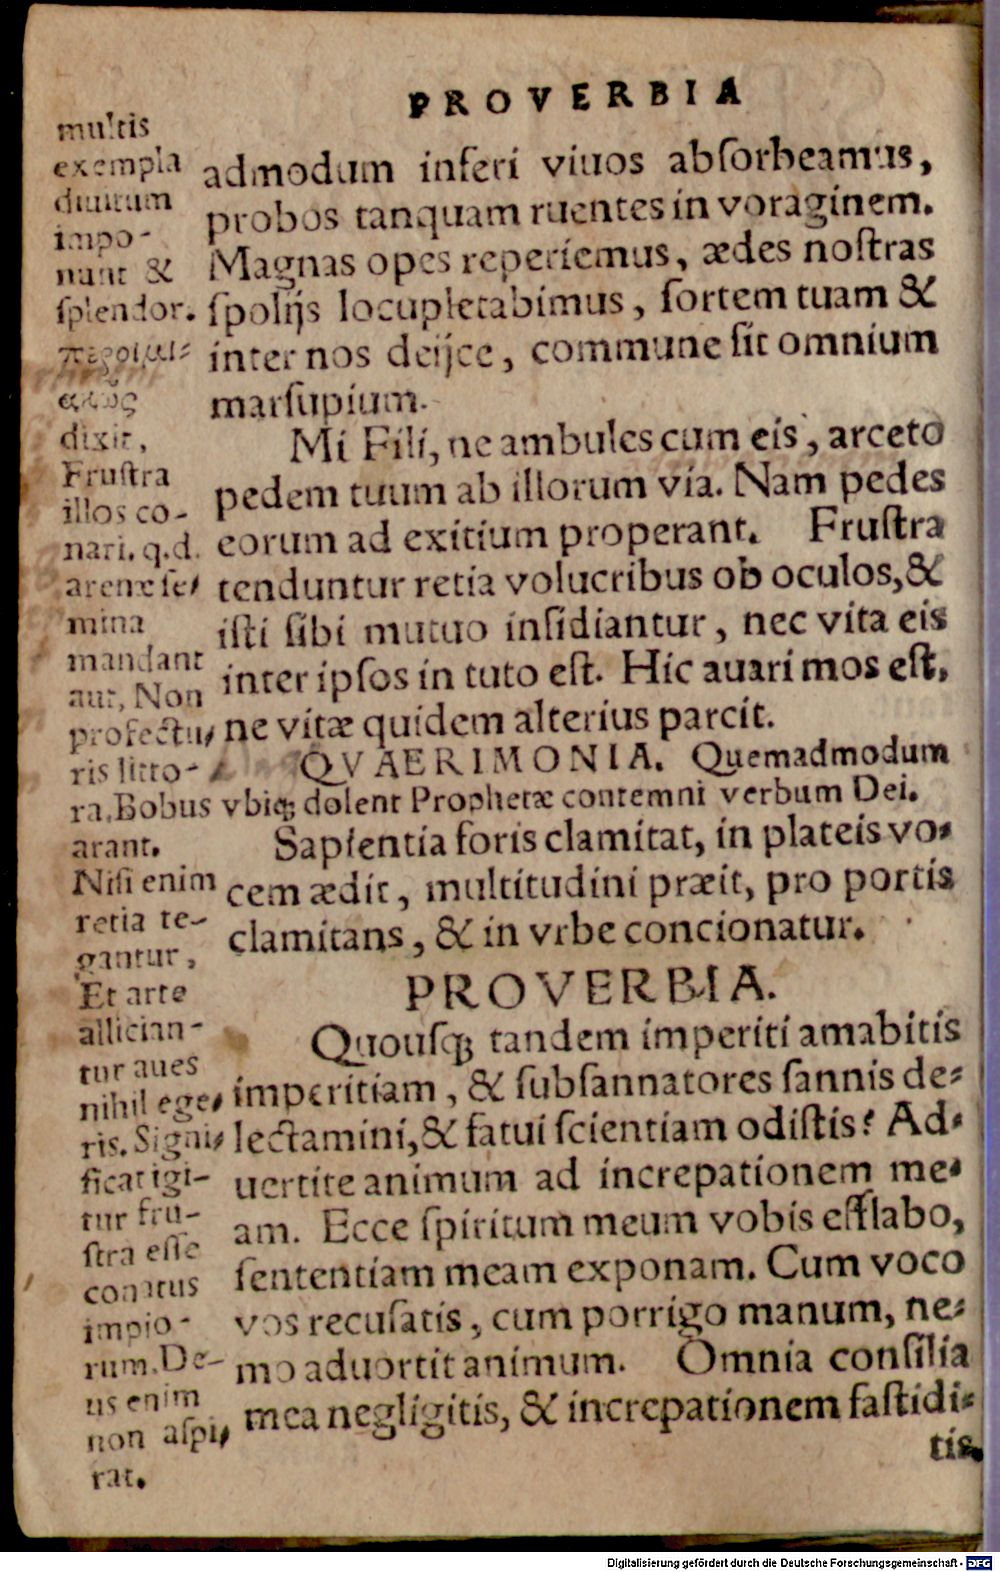 PROVERBIA
multis
exempla
diuitum
impo-
nunt &
ſplendor.
dixit,
Fruſtra
illos co-
nari. q.d.
arenæ ſe-
mina
mandant
aut, Non
profectu-
ris litto-
ra. Bobus
arant.
Niſi enim
retia te-
gantur,
Et arte
allician-
tur aues
nihil ege-
ris. Signi-
ficat igi-
tur fru-
ſtra eſſe
conatus
impio-
rum. De-
us enim
non aſpi-
rat.
admodum inferi viuos abſorbeamus,
probos tanquam ruentes in voraginem.
Magnas opes reperiemus, ædes noſtras
ſpolijs locupletabimus, ſortem tuam &
inter nos deijce, commune ſit omnium
marſupium.
Mi Fili, ne ambules cum eis, arceto
pedem tuum ab illorum via. Nam pedes
eorum ad exitium properant. Fruſtra
tenduntur retia volucribus ob oculos, &
iſti ſibi mutuo inſidiantur, nec vita eis
inter ipſos in tuto eſt. Hic auari mos eſt,
ne vitæ quidem alterius parcit.
QVAERIMONIA. Quemadmodum
vbiq; dolent Prophetæ contemni verbum Dei.
Sapientia foris clamitat, in plateis vo-
cem ædit, multitudini præit, pro portis
clamitans, & in vrbe concionatur.
PROVERBIA.
Quouſq; tandem imperiti amabitis
imperitiam, & ſubſannatores ſannis de-
lectamini, & fatui ſcientiam odiſtis? Ad-
uertite animum ad increpationem me-
am. Ecce ſpiritum meum vobis efflabo,
ſententiam meam exponam. Cum voco
vos recuſatis, cum porrigo manum, ne-
mo aduortit animum. Omnia conſilia
mea negligitis, & increpationem faſtidi-
tis.
Digitalisierung gefördert durch die Deutsche Forschungsgemeinschaft - DFG